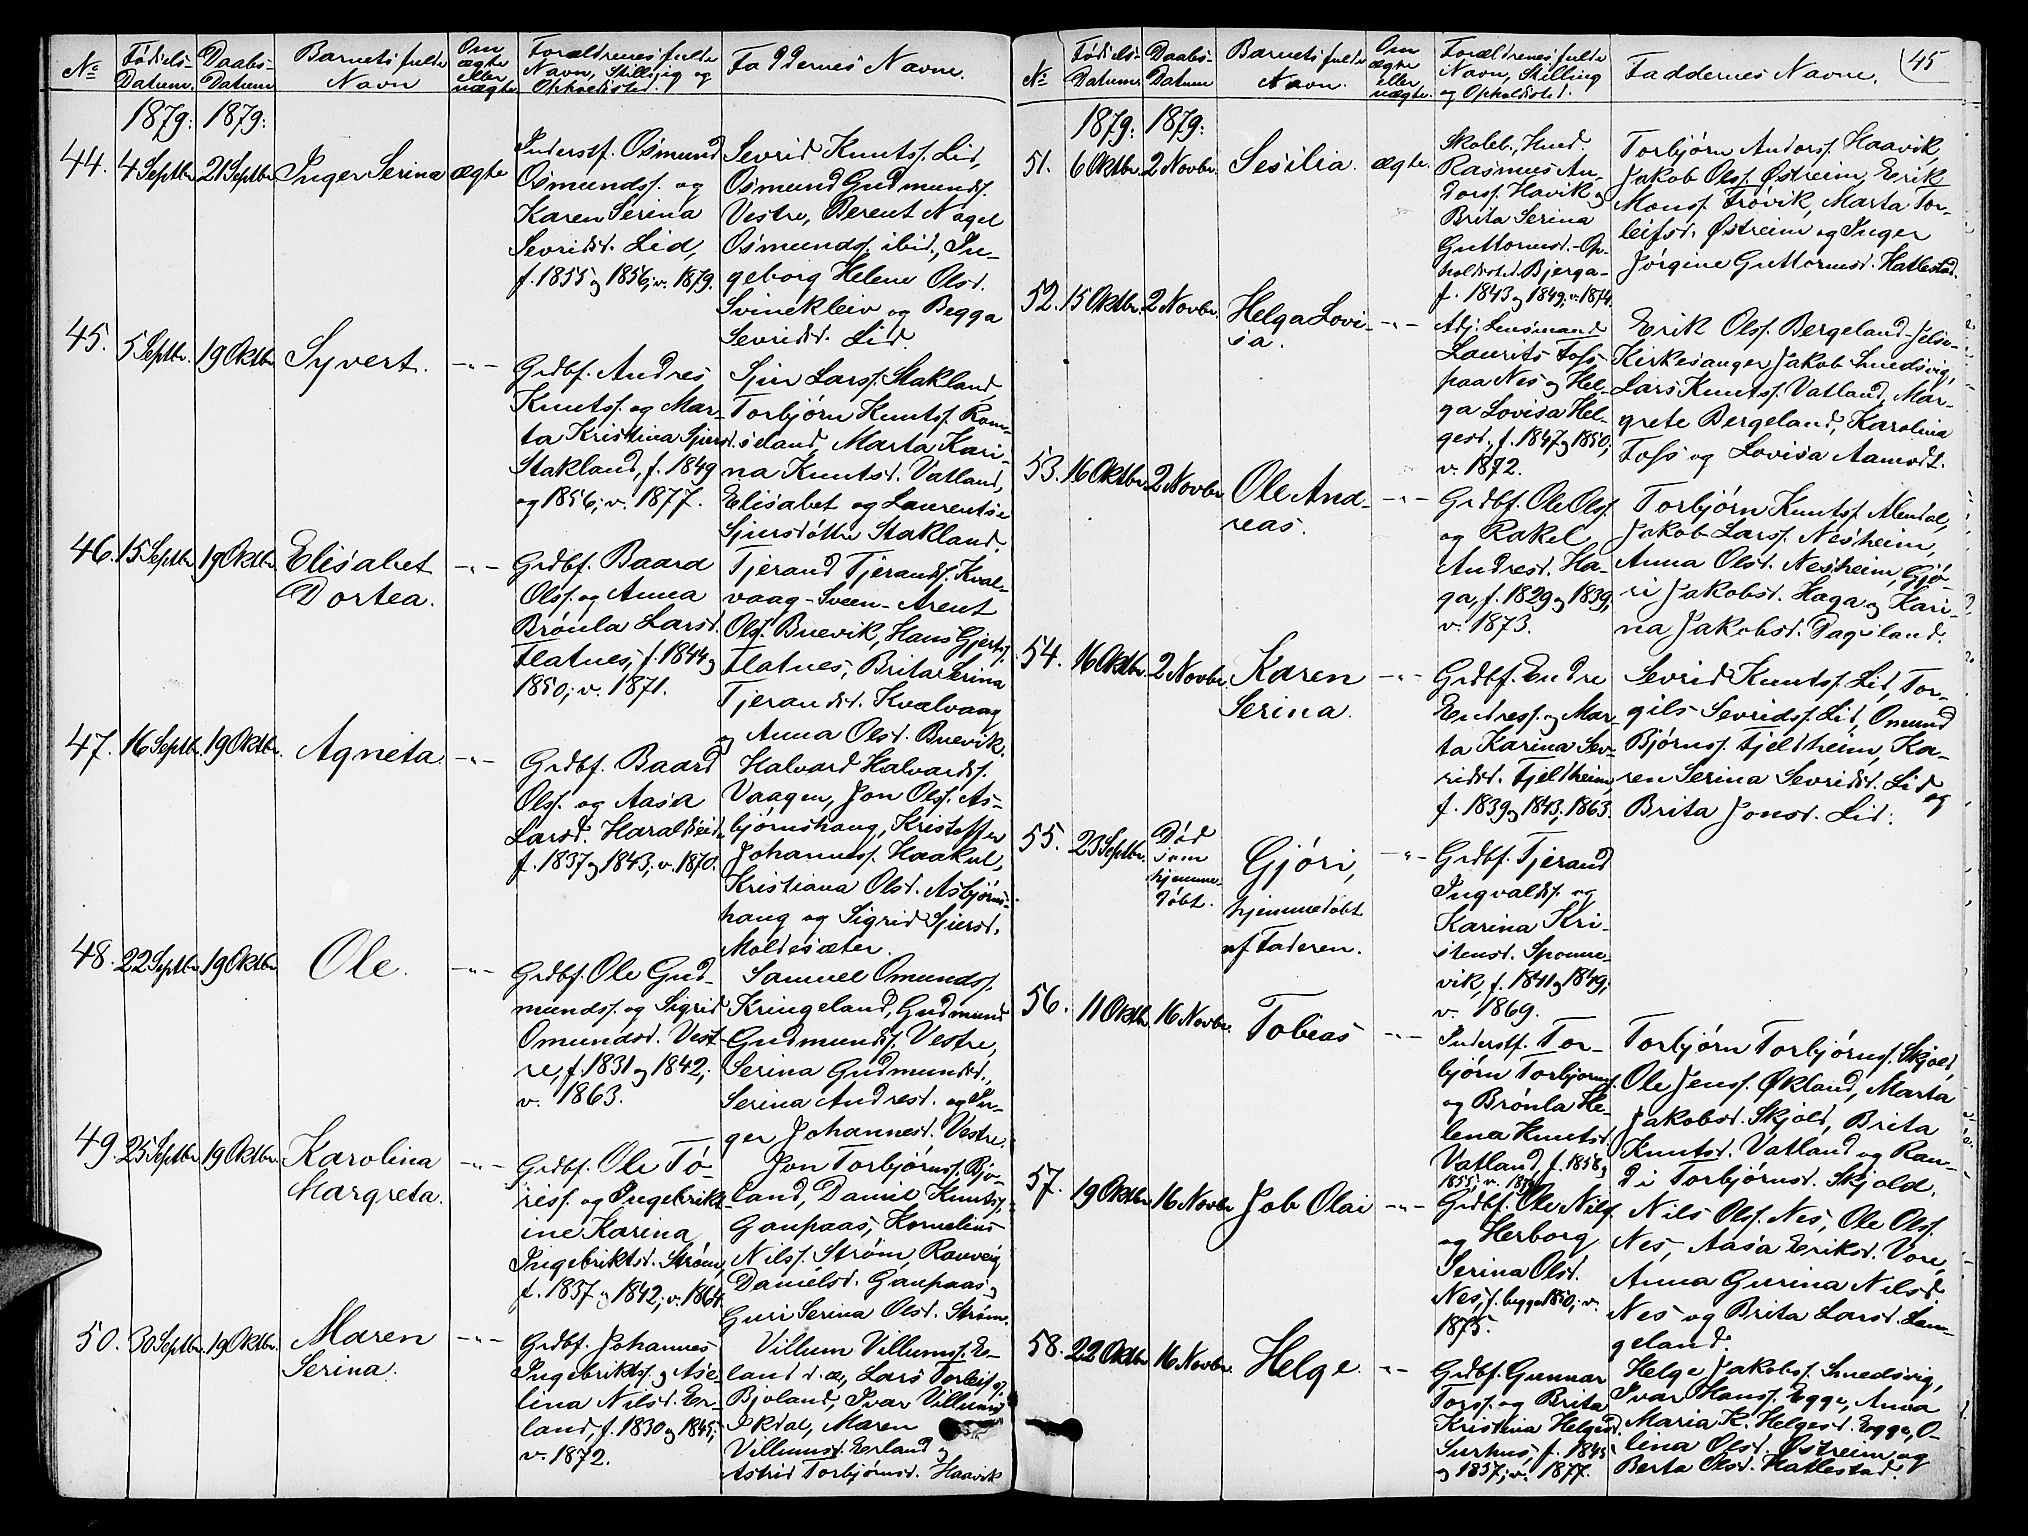 No
Fødsels-
Datum.
Daabs-
Datum
Barnets fulde
Navn
Om
ægte
eller
uægte
Forældrenes fulde
Navn, Stilling og
Opholdssted.
Faddernes Navne.
1879: 1879:
44. 4 Septbr. 21 Septbr. Inger Serina ægte
Inderstf. Osmund
Osmunds. og
Karen Serina
Sevridsd. Lid,
f. 1855 og 1856; v. 1879.
Sevrid Knuts. Lid,
Osmund Gudmunds.
Vestre, Berent Nagel
Osmunds. ibid., In-
geborg Helene Olsd.
Svinekleiv og Begga
Sevridsd. Lid.
45. 5 Septbr. 19 Oktbr. Syvert. -"-
Grdbf. Andres
Knuts. og Mar-
ta Kristina Sjursd.
Stakland, f. 1849
og 1856; v. 1877.
Sjur Lars. Stakland,
Torbjörn Knuts. Rom-
seland, Marta Kari-
na Knutsd. Vatland,
Elisabet og Laurentse
Sjursdöttre Stakland.
46. 15 Septbr. 19 Oktbr. Elisabet
Dortea. -"-
Grdbf. Baard
Ols. og Anna
Brónla Larsd.
Flatnes, f. 1844 og
1850; v. 1871.
Tjerand Tjerands. Kval-
vaag-Sveen- Arent
Ols. Buevik, Hans Gjerts.
Flatnes, Brita Serina
Tjerandsd. Kvalvaag
og Anna Olsd. Buevik.
47. 16 Septbr. 19 Oktbr. Agneta -"-
Grdbf. Baard
Ols. og Aasa
Larsd. Haraldseid,
f. 1837 og 1843; v. 1870.
Halvard Halvards.
Vaagen, Jon Ols. As-
bjørnshaug, Kristoffer
Johannes. Haakul,
Kristiana Olsd. Asbjörns-
haug og Sigrid Sjursd.
Moldesæter.
48. 22 Septbr. 19 Oktbr. Ole. -"-
Grdbf. Ole Gud-
munds. og Sigrid
Omundsd. Vest-
re, f. 1831 og 1842;
v. 1863.
Samuel Omunds.
Kringeland, Gudmund
Gudmunds. Vestre,
Serina Gudmundsd.,
Serina Andresd. og In-
ger Johannesd. Vestre.
49. 25 Septbr. 19 Oktbr. Karolina
Margreta. -"-
Grdbf. Ole Tó-
ress. og Ingebrikt-
ine Karina
Ingebriktsd. Strøm,
f. 1837 og 1842; v. 1864.
Jon Torbjörns. Bjo-
land, Daniel Knuts.
Gaupaas, Kornelius
Nils. Strøm, Ranveig
Danielsd. Gaupaas og
Guri Serina Olsd. Strøm.
50. 30 Septbr. 19 Oktbr. Maren
Serina. -"-
Grdbf. Johannes
Ingebrikts. og Ase-
lina Nilsd. Er-
land, f. 1830 og 1845;
v. 1872.
Villum Villums. Er-
land d. æ, Lars Torleifs.
Bjoland, Ivar Villums.
Ikdal, Maren
Villumsd. Erland og
Astrid Torbjörnsd. Haavik
45
No
Fødsels-
Datum.
Daabs-
Datum
Barnets fulde
Navn.
Om
ægte
eller
uægte.
Forældrenes fulde
Navn, Stilling
og Opholdssted.
Faddernes Navne.
1879: 1879:
51. 6 Oktbr. 2 Novbr. Sesilia. ægte.
Skoleh., Husd.
Rasmus An-
dors. Havik og
Brita Serina
Guttormsd.-Op-
holdssted Bjerga-
f. 1843 og 1849; v. 1874.
Torbjörn Andors. Haavik,
Jakob Ols. Østreim, Erik
Mons. Tróvik, Marta Tor-
leifsd. Østreim og Inger
Jörgine Guttormsd. Hatlestad.
52. 15 Oktbr. 2 Novbr. Helga Lovi-
sa. -"-
Adj. Lensmand
Laurits Foss
paa Nes og Hel-
ga Lovisa Hel-
gesd., f. 1847 og 1850;
v. 1872.
Erik Ols. Bergeland-Jelse-
Kirkesanger Jakob Smedsvig,
Lars Knuts. Vatland, Mar-
grete Bergeland, Karolina
Foss og Lovisa Aamodt.
53. 16 Oktbr. 2 Novbr. Ole And-
reas. -"-
Grdbf. Ole Ols.
og Rakel
Andresd. Ha-
ga, f. 1829 og 1839;
v. 1873.
Torbjörn Knuts. Alendal,
Jakob Lars. Nesheim,
Anna Olsd. Nesheim, Gjó-
ri Jakobsd. Haga og Kari-
na Jakobsd. Dagsland.
54. 16 Oktbr. 2 Novbr. Karen
Serina. -"-
Grdbf. Endre
Endres. og Mar-
ta Karina Sev-
ridsd. Fjeldheim,
f. 1839 og 1843; 1863.
Sevrid Knuts. Lid, Tor-
gils Sevrids. Lid, Omund
Björns. Fjeldheim, Ka-
ren Serina Sevridsd. Lid og
Brita Jonsd. Lid.
55. 23 Septbr. Död
som
hjemme-
döbt. Gjóri,
hjemmedøbt
af Faderen. -"-
Grdbf. Tjerand
Ingvalds. og
Karina Kri-
stensd. Sponne-
vik, f. 1841 og 1849;
v. 1869.
56. 11 Oktbr. 16 Novbr. Tobias -"-
Inderstf. Tor-
bjórn Torbjörns.
og Brónla He-
lena Knutsd.
Vatland, f. 1858 og
1855; v.
Torbjörn Torbjörns. Skjold,
Ole Jens. Økland, Marta
Jakobsd. Skjold, Brita
Knutsd. Vatland og Ran-
di Torbjörnsd. Skjold.
57. 19 Oktbr. 16 Novbr. Job Olai -"-
Grdbf. Ole Nils.
og Herborg
Serina Olsd.
Nes, f. begge 1850; v.
1875.
Nils Ols. Nes, Ole Ols.
Nes, Aasa Eriksd. Vore,
Anna Gurina Nilsd.
Nes og Brita Larsd. Lan-
geland.
58. 22 Oktbr. 16 Novbr. Helge. -"-
Grdbf. Gunnar
Tors. og Brita
Kristina Helgesd.
Surhus f. 1845
og 1857; v. 1877.
Helge Jakobs. Smedsvig,
Ivar Hans. Egge, Anna
Maria K. Helgesd. Egge, O-
lina Olsd. Østreim og
Berta Olsd. Hatlestad.